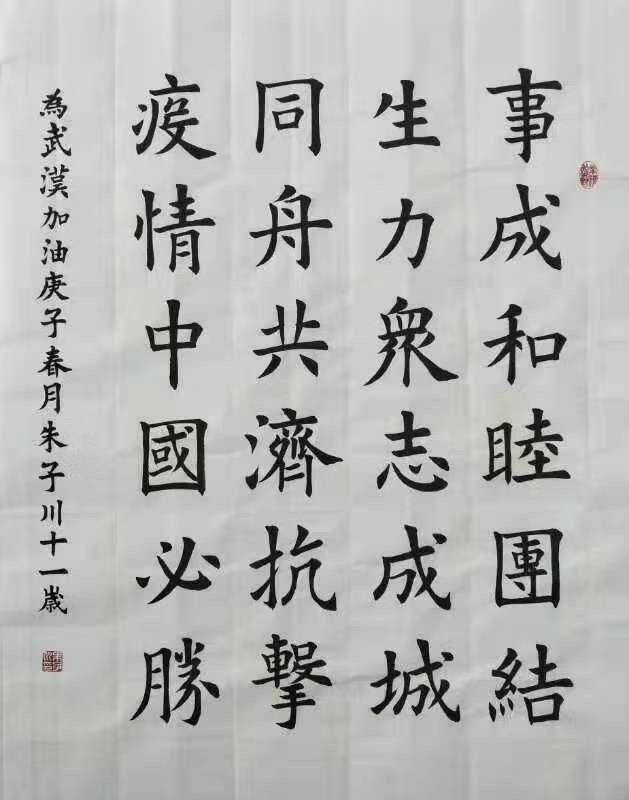 事成和睦團結
生力衆志成城
同舟共濟抗擊
疫情中國必勝
為武漢加油庚子春月朱子川十一歲